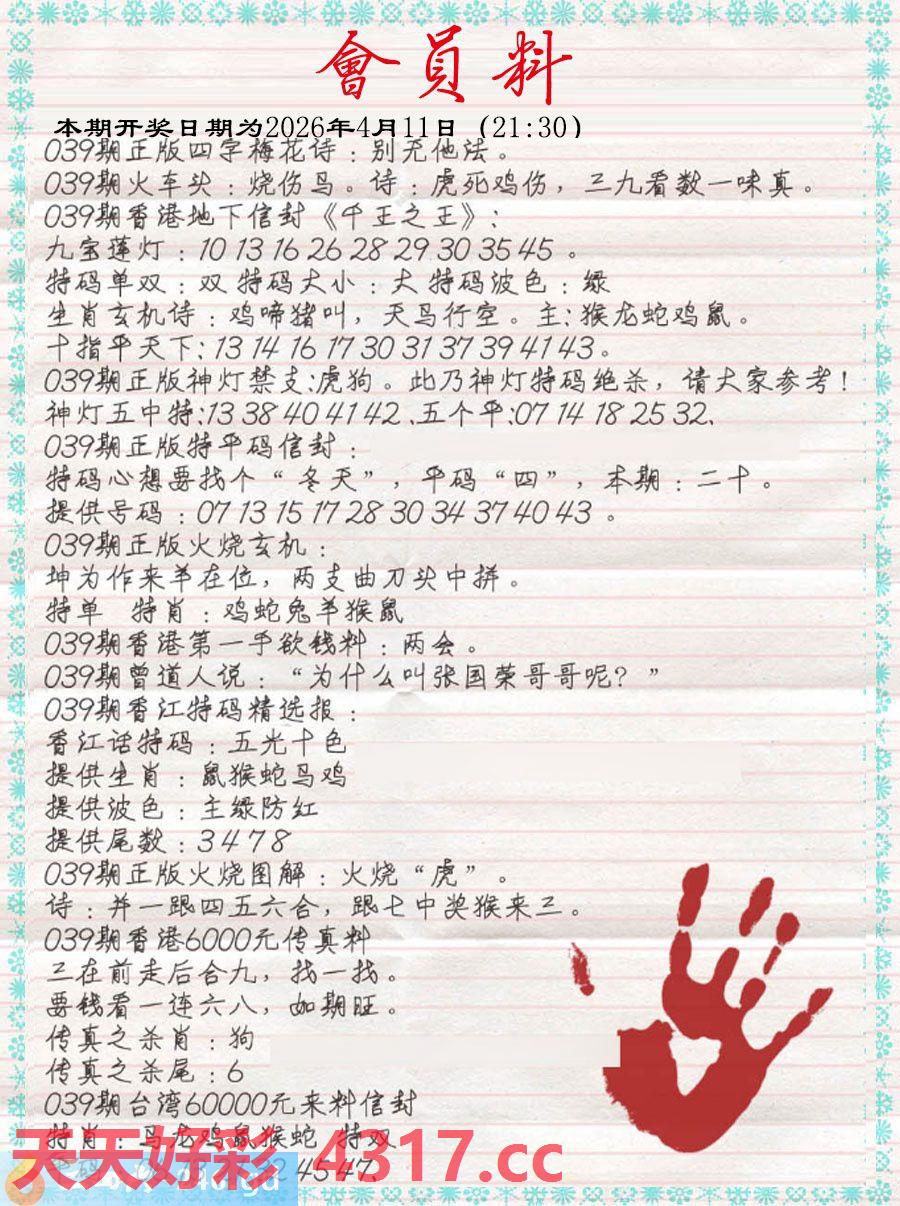 會員料
本期开奖日期为2026年4月11日（21:30）
039期正版四字梅花诗：别无他法。
039期火车头：烧伤鸟。诗：虎死鸡伤，三九看数一味真。
039期香港地下信封《千王之王》：
九宝莲灯：10 13 16 26 28 29 30 35 45 。
特码单双：双 特码大小：大 特码波色：绿
生肖玄机诗：鸡啼猪叫，天马行空。主：猴龙蛇鸡鼠。
十指平天下：13 14 16 17 30 31 37 39 41 43。
039期正版神灯禁支：虎狗。此乃神灯特码绝杀，请大家参考！
神灯五中特：13 38 40 41 42 、五个平：07 14 18 25 32、
039期正版特平码信封：
特码心想要找个“冬天”，平码“四”，本期：二十。
提供号码：07 13 15 17 28 30 34 37 40 43 。
039期正版火烧玄机：
坤为作来羊在位，两支曲刀头中拼。
特单 特肖：鸡蛇兔羊猴鼠
039期香港第一手欲钱料：两会。
039期曾道人说：“为什么叫张国荣哥哥呢？”
039期香江特码精选报：
香江话特码：五光十色
提供生肖：鼠猴蛇马鸡
提供波色：主绿防红
提供尾数：3 4 7 8
039期正版火烧图解：火烧“虎”。
诗：并一跟四五六合，跟七中奖猴来三。
039期香港6000元传真料
三在前走后合九，找一找。
要钱看一连六八，如期旺。
传真之杀肖：狗
传真之杀尾：6
039期台湾60000元来料信封
特肖：马龙鸡鼠猴蛇 特双
45 47、
天天好彩 4317.cc